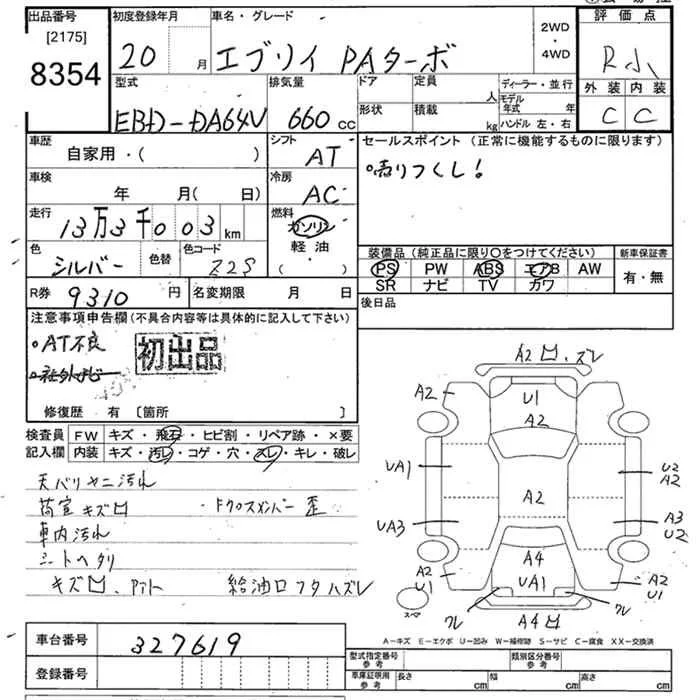 出品番号
[2175]
8354
初度登録年月
20 月
車名・グレード
エブリイ PAターボ
2WD
・
4WD
評価点
R小
外装 内装
C C
型式
EBD-DA64V
排気量
660 cc
ドア
定員
人
ディーラー・並行
モデル年式 年
形状
積載
kg
ハンドル 左・右
車歴
自家用・( )
シフト
AT
セールスポイント (正常に機能するものに限ります)
売りつくし!
車検
年 月( 日)
冷房
AC
走行
13万3千003 km
燃料
ガソリン
軽油
( )
色
シルバー
色替
色コード
Z2S
装備品 (純正品に限り○をつけてください)
PS PW ABS エアB AW
SR ナビ TV カワ
新車保証書
有・無
R券
9310 円
名変期限 月 日
後日品
注意事項申告欄(不具合内容等は具体的に記入して下さい)
・AT不良
・社外ナビ
初出品
修復歴 有 [箇所 ]
検査員
記入欄
FW キズ・飛石・ヒビ割・リペア跡・×要
内装 キズ・汚レ・コゲ・穴・スレ・キレ・破レ
天バリヤニ汚れ
荷室キズ凹 ・Fクロスメンバー歪
車内汚れ
シートヘタリ
キズ凹、 給油口フタハズレ
A2凹、ズレ
A2
U1
A2
UA1
U2
A2
A2
UA3
A3
U2
A4
A2
U1
UA1
A2
U1
ワレ
ワレ
A4凹
スペア
A-キズ E-エクボ U-凹み W-補修跡 S-サビ C-腐食 XX-交換済
車台番号
327619
登録番号
型式指定番号
参考
類別区分番号
参考
車庫証明用
参考
長さ cm
幅 cm
高さ cm